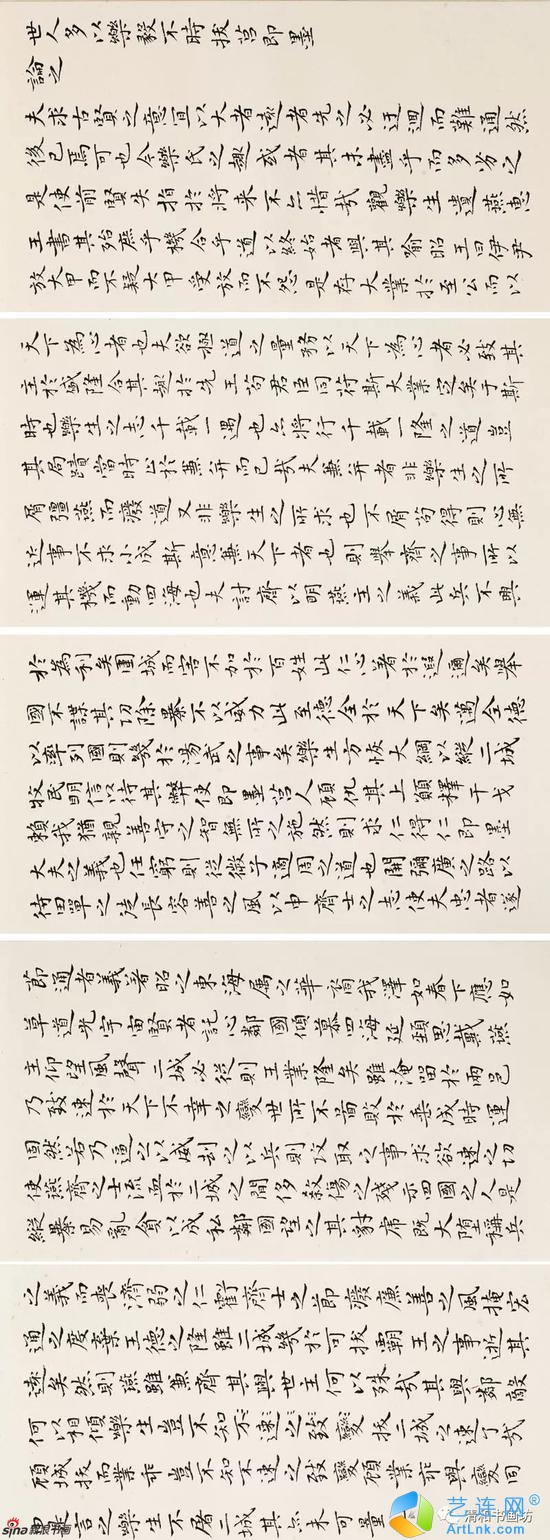 世人多以樂毅不時拔莒即墨
論之
夫求古賢之意宜以大者遠者先之必迂迴而難通然
後已焉可也今樂氏之趣或者其未盡乎而多劣之
是使前賢失指於將来不亦惜哉觀樂生遺燕惠
王書其殆庶乎機合乎道以終始者與其喻昭王曰伊尹
放大甲而不疑大甲受放而不怨是存大業於至公而以
天下為心者也夫欲極道之量務以天下為心者必致其
主於盛隆合其趣於先王苟君臣同符斯大業定矣于斯
時也樂生之志千載一遇也亦將行千載一隆之道豈
其局蹟當時止於兼并而已哉夫兼并者非樂生之所
屑彊燕而廢道又非樂生之所求也不屑苟得則心無
近事不求小成斯意兼天下者也則舉齊之事所以
運其機而動四海也夫討齊以明燕主之義此兵不興
於為利矣圍城而害不加於百姓此仁心著於遐邇矣舉
國不謀其功除暴不以威力此至德全於天下矣邁全德
以率列國則幾於湯武之事矣樂生方恢大綱以縱二城
牧民明信以待其弊使即墨莒人顧仇其上願釋干戈
賴我猶親善守之智無所之施然則求仁得仁即墨
大夫之義也任窮則從微子適周之道也開彌廣之路以
待田單之徒長容善之風以申齊士之志使夫忠者遂
節通者義著昭之東海属之華裔我澤如春下應如
草道光宇宙賢者託心鄰國傾慕四海延頸思戴燕
主仰望風聲二城必從則王業隆矣雖淹留於兩邑
乃致速於天下不幸之變世所不啚敗於垂成時運
固然若乃逼之以威劫之以兵則攻取之事求欲速之功
使燕齊之士流血於二城之間侈殺傷之殘示四國之人是
縱暴易亂貪以成私鄰國望之其豺虎既大堕稱兵
之義而喪濟弱之仁虧齊士之節廢廉善之風掩宏
通之度棄王德之隆雖二城幾於可拔霸王之事逝其
遠矣然則燕雖兼齊其與世主何以殊哉其與鄰敵
何以相傾樂生豈不知不速之致變拔二城之速了哉
顧城拔而業乖豈不知不速之致變顧業乖與變同
由是言之樂生不屠二城其亦未可量
艺连网
ArtLink.CN